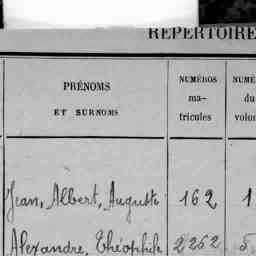 RÉPERTOIRE
PRÉNOMS
ET SURNOMS
NUMÉROS
ma-
tricules
NUMÉ
du
volum
Jean, Albert, Auguste 162 1
Alexandre, Théophile 2252